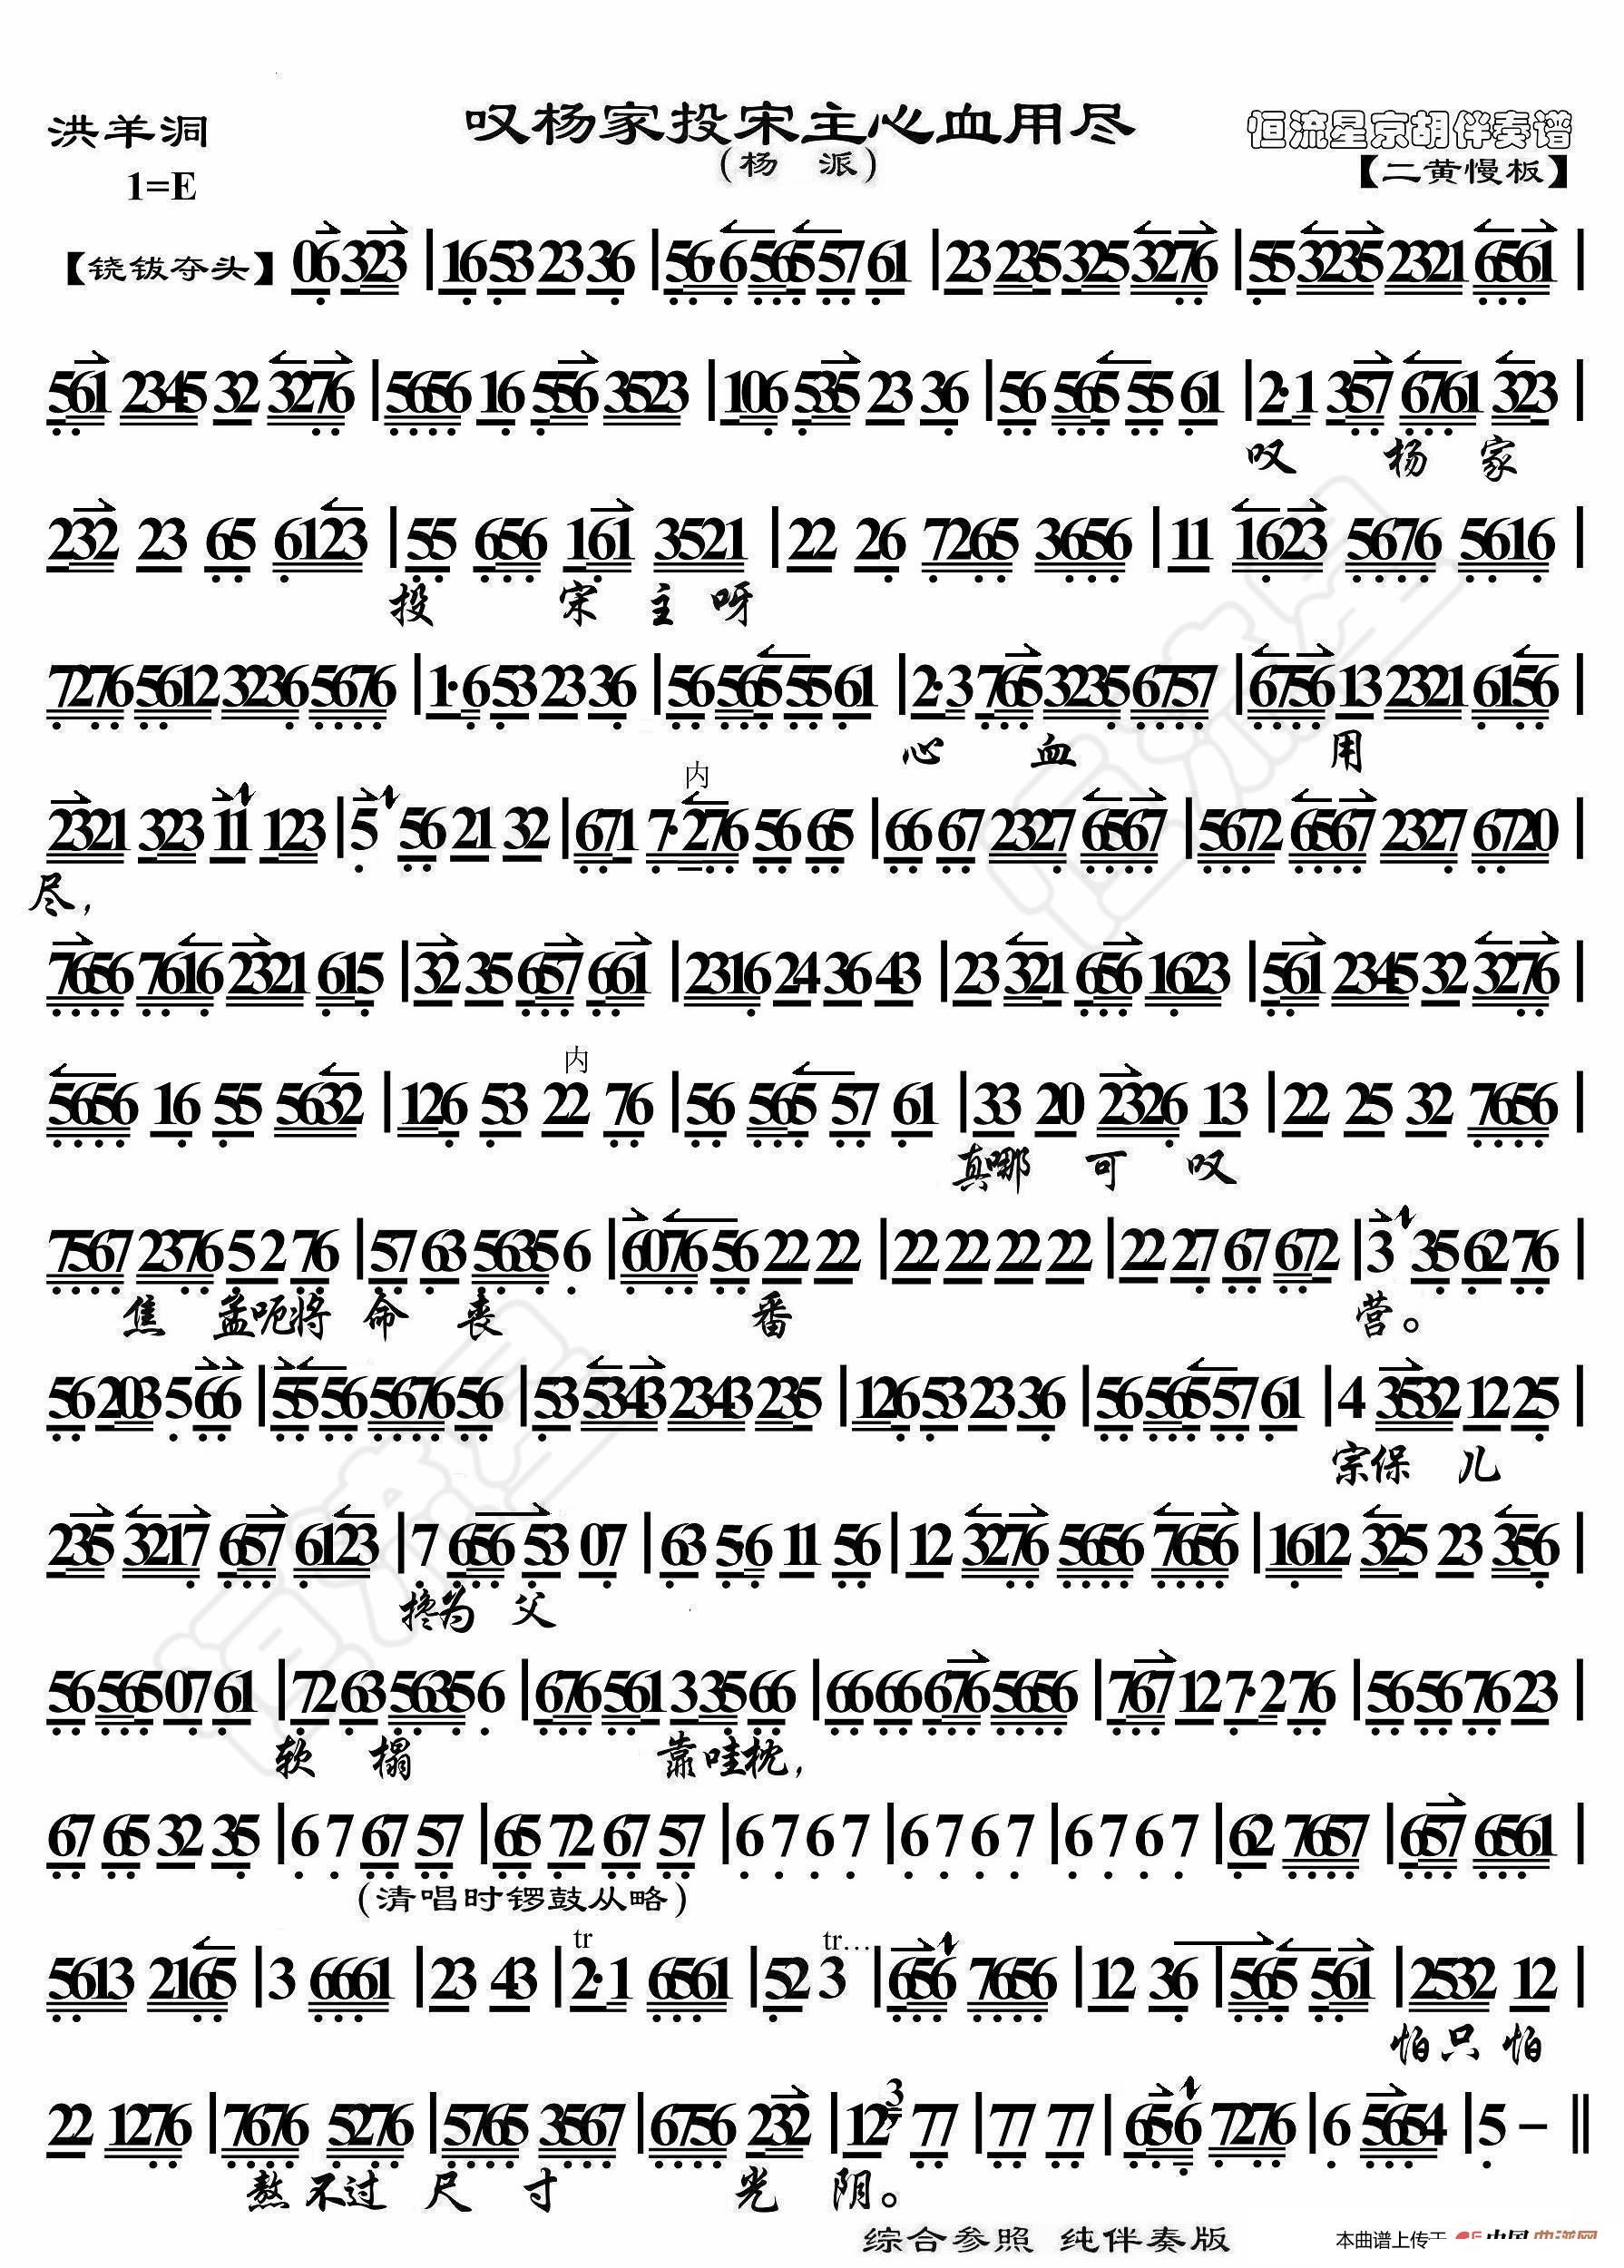 叹杨家投宋主心血用尽
洪羊洞
恒流星京胡伴奏谱
(杨 派)
【二黄慢板】
1=E
【铙钹夺头】 06 323 | 16 53 23 36 | 56·6 565 57 61 | 23 235 325 3276 | 55 3235 2321 6561 |
561 2345 32 3276 | 5656 16 556 3523 | 106 535 23 36 | 56 565 55 61 | 2·1 357 6761 323 |
叹 杨 家
232 23 65 6123 | 55 656 161 3521 | 22 26 7265 3656 | 11 1623 5676 5616 |
投 宋 主 呀
7276 5612 3236 5676 | 1·6 53 23 36 | 56 565 55 61 | 2·3 765 3235 6757 | 6756 13 2321 6156 |
心 血 用
内
2321 323 11 123 | 5 56 21 32 | 671 7·276 56 65 | 66 67 2327 6567 | 5672 6567 2327 6720 |
尽,
7656 7616 2321 615 | 32 35 657 661 | 2316 24 36 43 | 23 321 656 1623 | 561 2345 32 3276 |
内
5656 16 55 5632 | 126 53 22 76 | 56 565 57 61 | 33 20 2326 13 | 22 25 32 7656 |
真哪 可 叹
7567 2376 52 76 | 57 63 5635 6 | 6076 56 22 22 | 22 22 22 22 | 22 27 67 672 | 3 35 62 76 |
焦 孟呃将 命 丧 番 营。
56 203 5 66 | 55 56 5676 56 | 53 5343 2343 235 | 126 53 23 36 | 56 565 57 61 | 4 3532 12 25 |
宗保 儿
235 3217 657 6123 | 7 656 53 07 | 63 5·6 11 56 | 12 3276 5656 7656 | 1612 325 23 356 |
搀为 父
56 565 07 61 | 72 63 5635 6 | 676 561 335 66 | 66 66 676 5656 | 767 12 7·2 76 | 56 56 76 23 |
软 榻 靠哇枕,
67 65 32 35 | 6 7 67 57 | 65 72 67 57 | 6 7 6 7 | 6 7 6 7 | 6 7 6 7 | 62 7657 | 657 6561 |
(清唱时锣鼓从略)
tr tr...
5613 2165 | 3 6661 | 23 43 | 2·1 6561 | 52 3 | 656 7656 | 12 36 | 565 561 | 2532 12 |
怕只 怕
3
22 1276 | 7676 5276 | 5765 3567 | 6756 232 | 12 77 | 77 77 | 65·6 7276 | 6 5654 | 5 – ‖
熬 不过 尺 寸 光 阴。
综合参照 纯伴奏版
本曲谱上传于